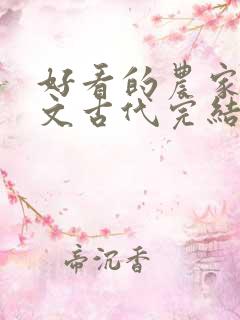 好看的農家
文古代完結
帝沉香